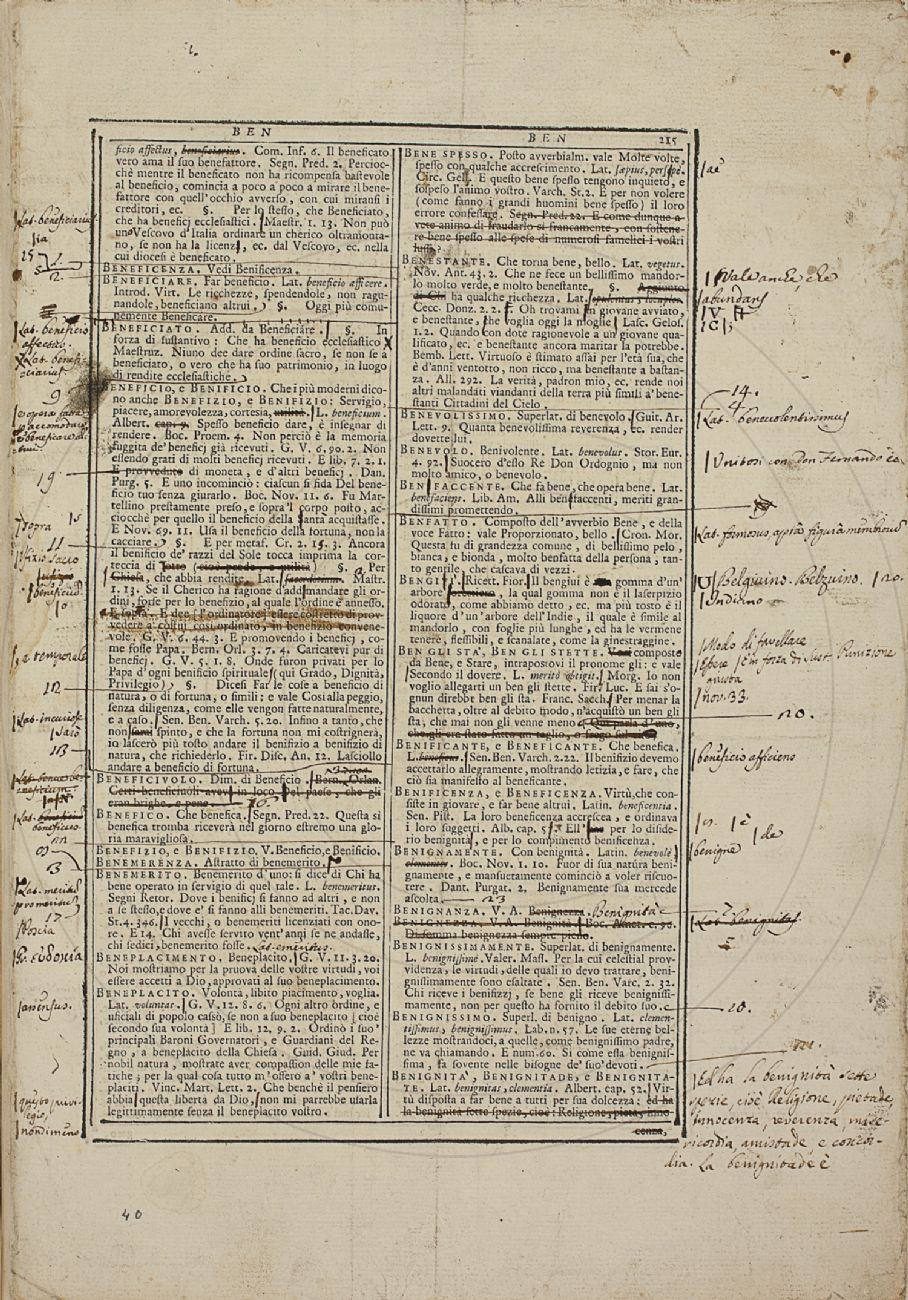 BEN
ficio affectus, beneficiarius. Com. Inf. 6. Il beneficato
vero ama il suo benefattore. Segn. Pred. 2. Percioc-
chè mentre il beneficato non ha ricompensa bastevole
al beneficio, comincia a poco a poco a mirare il bene-
fattore con quell'occhio avverso, con cui miransi i
creditori, ec. §. Per lo stesso, che Beneficiato,
che ha beneficj ecclesiastici. Maestr. 1. 13. Non può
uno Vescovo d'Italia ordinare un cherico oltramonta-
no, se non ha la licenza, ec. dal Vescovo, ec. nella
cui diocesi è beneficato.
BENEFICENZA. Vedi Benificenza.
BENEFICIARE. Far beneficio. Lat. beneficio afficere.
Introd. Virt. Le ricchezze, spendendole, non ragu-
nandole, beneficiano altrui. §. Oggi più comu-
nemente Beneficare.
BENEFICIATO. Add. da Beneficiare. §. In
forza di sustantivo: Che ha beneficio ecclesiastico
Maestruz. Niuno dee dare ordine sacro, se non se a
beneficiato, o vero che ha suo patrimonio, in luogo
di rendite ecclesiastiche.
BENEFICIO, e BENIFICIO. Che i più moderni dico-
no anche BENEFIZIO, e BENIFIZIO: Servigio,
piacere, amorevolezza, cortesia, utilità. L. beneficium.
Albert. cap. 9. Spesso beneficio dare, è insegnar di
rendere. Boc. Proem. 4. Non perciò è la memoria
fuggita de' benefici già ricevuti. G. V. 6. 90. 2. Non
essendo grati di molti benefici ricevuti. E lib. 7. 2. 1.
E provveduto di moneta, e d'altri benefici. Dan.
Purg. 5. E uno incominciò: ciascun si fida Del bene-
ficio tuo senza giurarlo. Boc. Nov. 11. 6. Fu Mar-
tellino prestamente preso, e sopra'l corpo posto, ac-
ciocchè per quello il beneficio della santà acquistasse.
E Nov. 69. 11. Usa il beneficio della fortuna, non la
cacciare. §. E per metaf. Cr. 2. 15. 3. Ancora
il benificio de' razzi del Sole tocca imprima la cor-
teccia di §. Per
Chiesa, che abbia rendite. Lat. Mastr.
1. 13. Se il Cherico ha ragione d'addimandare gli or-
dini, forse per lo benefizio, al quale l'ordine è annesso.
E dee l'ordinatore essere costretto di prov-
vedere a costui così ordinato, in benefizio convene-
vole. G. V. 6. 44. 3. E promovendo i beneficj, co-
me fosse Papa. Bern. Orl. 3. 7. 4. Caricatevi pur di
beneficj. G. V. 5. 1. 8. Onde furon privati per lo
Papa d'ogni benificio spirituale (qui Grado, Dignità,
Privilegio), §. Dicesi Far le cose a beneficio di
natura, o di fortuna, o simili: e vale Così alla peggio,
senza diligenza, come elle vengon fatte naturalmente,
e a caso. Sen. Ben. Varch. 5. 20. Infino a tanto, che
non sarai spinto, e che la fortuna non mi costrignerà,
io lascerò più tosto andare il benifizio a benifizio di
natura, che richiederlo. Fir. Disc. An. 12. Lasciollo
andare a beneficio di fortuna.
BENEFICIVOLO. Dim. di Beneficio. Bern. Orlan.
Certi beneficiuoli avevi in loco Del paese, che gli
eran brighe, e pene.
BENEFICO. Che benefica. Segn. Pred. 22. Questa sì
benefica tromba riceverà nel giorno estremo una glo-
ria maravigliosa.
BENEFIZIO, e BENIFIZIO, V. Beneficio, e Benificio.
BENEMERENZA. Astratto di benemerito.
BENEMERITO. Benemerito d'uno: si dice di Chi ha
bene operato in servigio di quel tale. L. benemeritus.
Segni Retor. Dove i benificj si fanno ad altri, e non
a se stesso, e dove e' si fanno alli benemeriti. Tac. Dav.
St. 4. 346. I vecchi, o benemeriti licenziati con ono-
re. E 14. Chi avesse servito vent'anni se ne andasse,
chi sedici, benemerito fosse. Lat. emeritus.
BENEPLACIMENTO. Beneplacito. G. V. 11. 3. 20.
Noi mostriamo per la pruova delle vostre virtudi, voi
essere accetti a Dio, approvati al suo beneplacimento.
BENEPLACITO. Volontà, libito piacimento, voglia.
Lat. voluntas. G. V. 12. 8. 6. Ogni altro ordine, e
uficiali di popolo cassò, se non a suo beneplacito [cioè
secondo sua volontà] E lib. 12. 9. 2. Ordinò i suo'
principali Baroni Governatori, e Guardiani del Re-
gno, a beneplacito della Chiesa. Guid. Giud. Per
nobil natura, mostrate aver compassion delle mie fa-
tiche; per la qual cosa tutto m'offero a' vostri bene-
placiti. Vinc. Mart. Lett. 2. Che benchè il pensiero
abbia questa liberta da Dio, non mi parrebbe usarla
legittimamente senza il beneplacito vostro.
BEN 215
BENE SPESSO. Posto avverbialm. vale Molte volte,
spesso con qualche accrescimento. Lat. sæpius, persæpe.
Circ. Gell. E questo bene spesso tengono inquieto, e
sospeso l'animo vostro. Varch. St. 2. E per non volere
(come fanno i grandi huomini bene spesso) il loro
errore confessare. Segn. Pred. 22. E come dunque a-
vete animo di fraudarlo sì francamente, con sostene-
re bene spesso alle spese di numerosi famelici i vostri
lussi?
BENESTANTE. Che torna bene, bello. Lat. vegetus.
Nov. Ant. 43. 2. Che ne fece un bellissimo mandor-
lo molto verde, e molto benestante. §. Aggiunto
di Chi ha qualche ricchezza. Lat. opulentus, locuples.
Cecc. Donz. 2. 2. Oh trovami un giovane avviato,
e benestante, che voglia oggi la moglie. Lasc. Gelos.
1. 2. Quando con dote ragionevole a un giovane qua-
lificato, ec. e benestante ancora maritar la potrebbe.
Bemb. Lett. Virtuoso è stimato assai per l'età sua, che
è d'anni ventotto, non ricco, ma benestante a bastan-
za. All. 292. La verità, padron mio, ec. rende noi
altri malandati viandanti della terra più simili a' bene-
stanti Cittadini del Cielo.
BENEVOLISSIMO. Superlat. di benevolo. Guit. Ar.
Lett. 9. Quanta benevolissima reverenza, ec. render
dovette lui.
BENEVOLO. Benivolente. Lat. benevolus. Stor. Eur.
4. 92. Suocero d'esso Re Don Ordognio, ma non
molto amico, o benevolo.
BENFACCENTE. Che fa bene, che opera bene. Lat.
benefaciens. Lib. Am. Alli benfaccenti, meriti gran-
dissimi promettendo.
BENFATTO. Composto dell'avverbio Bene, e della
voce Fatto: vale Proporzionato, bello. Cron. Mor.
Questa fu di grandezza comune, di bellissimo pelo,
bianca, e bionda, molto benfatta della persona, tan-
to gentile, che cascava di vezzi.
BENGIUÌ. Ricett. Fior. Il bengiuì è gomma d'un'
arbore, la qual gomma non è il laserpizio
odorato, come abbiamo detto, ec. ma più tosto è il
liquore d'un'arbore dell'Indie, il quale è simile al
mandorlo, con foglie più lunghe, ed ha le vermene
tenere, flessibili, e scanalate, come la ginestraggine.
BEN GLI STA', BEN GLI STETTE. Voci composto
da Bene, e Stare, intrapostovi il pronome gli: e vale
Secondo il dovere. L. merito obtigit. Morg. Io non
voglio allegarti un ben gli stette. Fir. Luc. E sai s'o-
gnun direbbe ben gli sta. Franc. Sacch. Per menar la
bacchetta, oltre al debito modo, n'acquistò un ben gli
sta, che mai non gli venne meno. Qui parla d'uno,
che gli era stato fatto un taglio, o
BENIFICANTE, e BENEFICANTE. Che benefica.
L. Sen. Ben. Varch. 2. 22. Il benifizio devemo
accettarlo allegramente, mostrando letizia, e fare, che
ciò sia manifesto al beneficante.
BENIFICENZA, e BENEFICENZA. Virtù, che con-
siste in giovare, e far bene altrui. Latin. beneficentia.
Sen. Pist. La loro beneficenza accrescea, e ordinava
i loro suggetti. Alb. cap. 5. Ell' per lo deside-
rio benignità, e per lo compimento benificenza.
BENIGNAMENTE. Con benignità. Latin. benevolè
clementer. Boc. Nov. 1. 10. Fuor di sua natura beni-
gnamente, e mansuetamente cominciò a voler riscuo-
tere. Dant. Purgat. 2. Benignamente sua mercede
ascolta. 23
BENIGNANZA. V. A. Benignezza. Benignità
BENIGNEZZA. V. A. Benignità. Boc. Amet. c. 90.
Di somma benignezza sempre pieno.
BENIGNISSIMAMENTE. Superlat. di benignamente.
L. benignissimè. Valer. Mass. Per la cui celestial prov-
videnza, le virtudi, delle quali io devo trattare, beni-
gnissimamente sono esaltate. Sen. Ben. Varc. 2. 32.
Chi riceve i benifizzj, se bene gli riceve benignissi-
mamente, non per questo ha fornito il debito suo.
BENIGNISSIMO. Superl. di benigno. Lat. clemen-
tissimus, benignissimus. Lab. n. 57. Le sue eterne bel-
lezze mostrandoci, a quelle, come benignissimo padre,
ne va chiamando. E num. 60. Si come essa benignis-
sima, fa sovente nelle bisogne de' suo' devoti.
BENIGNITA', BENIGNITADE, e BENIGNITA-
TE. Lat. benignitas, clementia. Albert. cap. 52. Vir-
tù disposta a far bene a tutti per sua dolcezza: ed ha
la benignità sette spezie, cioè: Religione, pietà, inno-
cenza,
Lat. beneficiarius
Lat. beneficio
affectus.
9
19
sopra
11
temporale
12
13
3
17
Gr. εὐδοκία
nondimeno
Vale anche che
14.
Lat. benevolentissimus
Benignità
Belguino. Belzuino. 20.
Modo di favellare
nov. 33.
20.
beneficio afficiens
benigne
Lat. benignitas
20.
Ed ha la benignità sette
spezie, cioè Religione, pietade,
innocenza, reverenza, mise-
ricordia, amistade e concor-
dia. La benignitade è
40